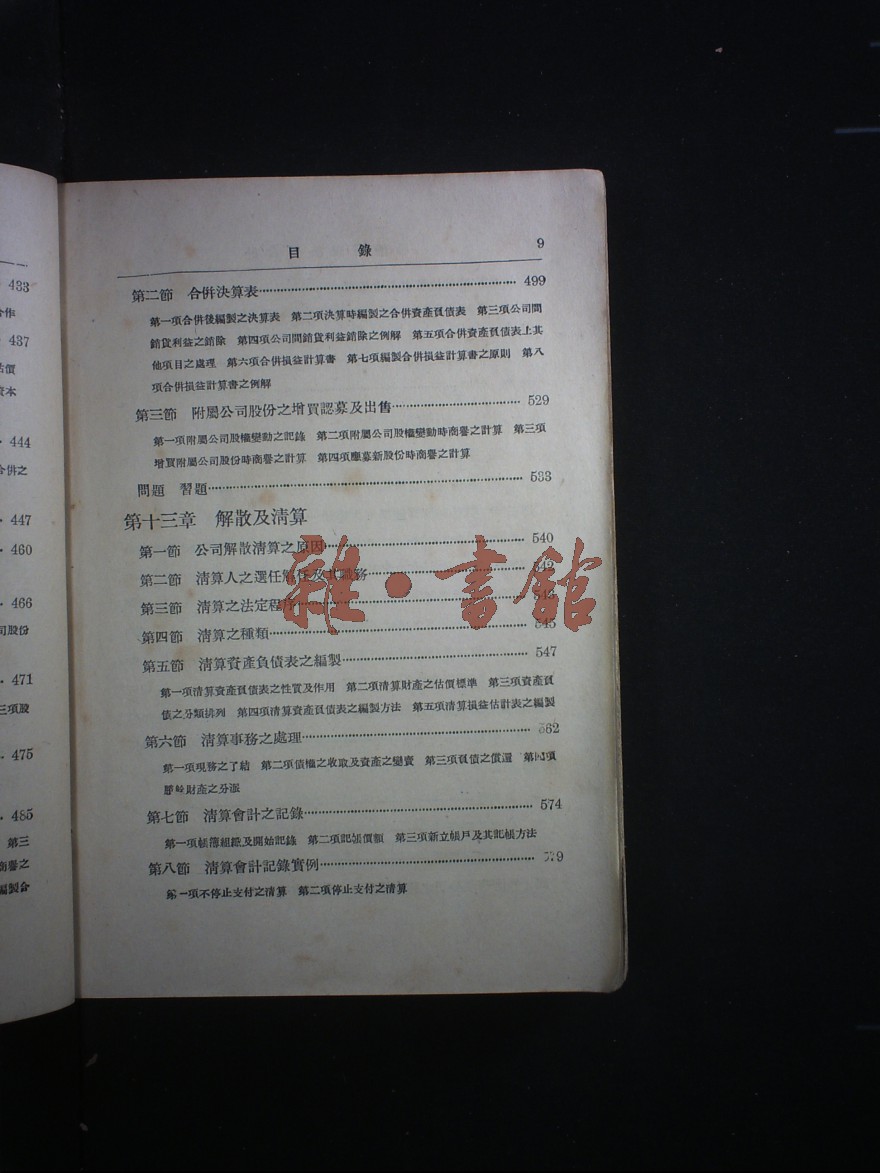 433
合作
437
估價
資本
444
合併之
447
460
466
司股份
471
三項股
475
485
第三
商譽之
編製合
目 錄 9
第二節 合併決算表 499
第一項合併後編製之決算表 第二項決算時編製之合併資產負債表 第三項公司間
銷貨利益之銷除 第四項公司間銷貨利益銷除之例解 第五項合併資產負債表上其
他項目之處理 第六項合併損益計算書 第七項編製合併損益計算書之原則 第八
項合併損益計算書之例解
第三節 附屬公司股份之增買認募及出售 529
第一項附屬公司股權變動之記錄 第二項附屬公司股權變動時商譽之計算 第三項
增買附屬公司股份時商譽之計算 第四項應募新股份時商譽之計算
問題 習題 533
第十三章 解散及淸算
第一節 公司解散淸算之原因 540
第二節 淸算人之選任解任及其職務 542
第三節 淸算之法定程序 543
第四節 淸算之種類 545
第五節 淸算資產負債表之編製 547
第一項淸算資產負債表之性質及作用 第二項淸算財產之估價標準 第三項資產負
債之分類排列 第四項淸算資產負債表之編製方法 第五項淸算損益估計表之編製
第六節 淸算事務之處理 562
第一項現務之了結 第二項債權之收取及資產之變賣 第三項負債之償還 第四項
賸餘財產之分派
第七節 淸算會計之記錄 574
第一項帳簿組織及開始記錄 第二項記帳價額 第三項新立帳戶及其記帳方法
第八節 淸算會計記錄實例 579
第一項不停止支付之淸算 第二項停止支付之淸算
雜·書館